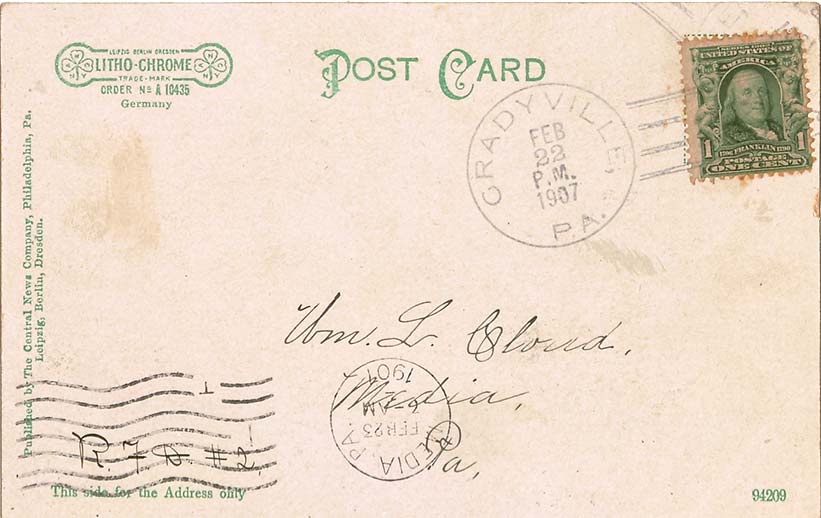 LEIPZIG BERLIN DRESDEN
LITHO-CHROME
TRADE-MARK
ORDER No A 10435
Germany
POST CARD
GRADYVILLE,
FEB
22
P.M.
1907
P.A.
SERIES 1902
UNITED STATES OF
AMERICA
1 1
1706 FRANKLIN 1790
POSTAGE
ONE CENT
Published by The Central News Company, Philadelphia, Pa.
Leipzig, Berlin, Dresden.
Wm. L. Cloud,
Media,
Pa,
MEDIA, PA
FEB 23
AM
1907
R F D #2
This side for the Address only
94209